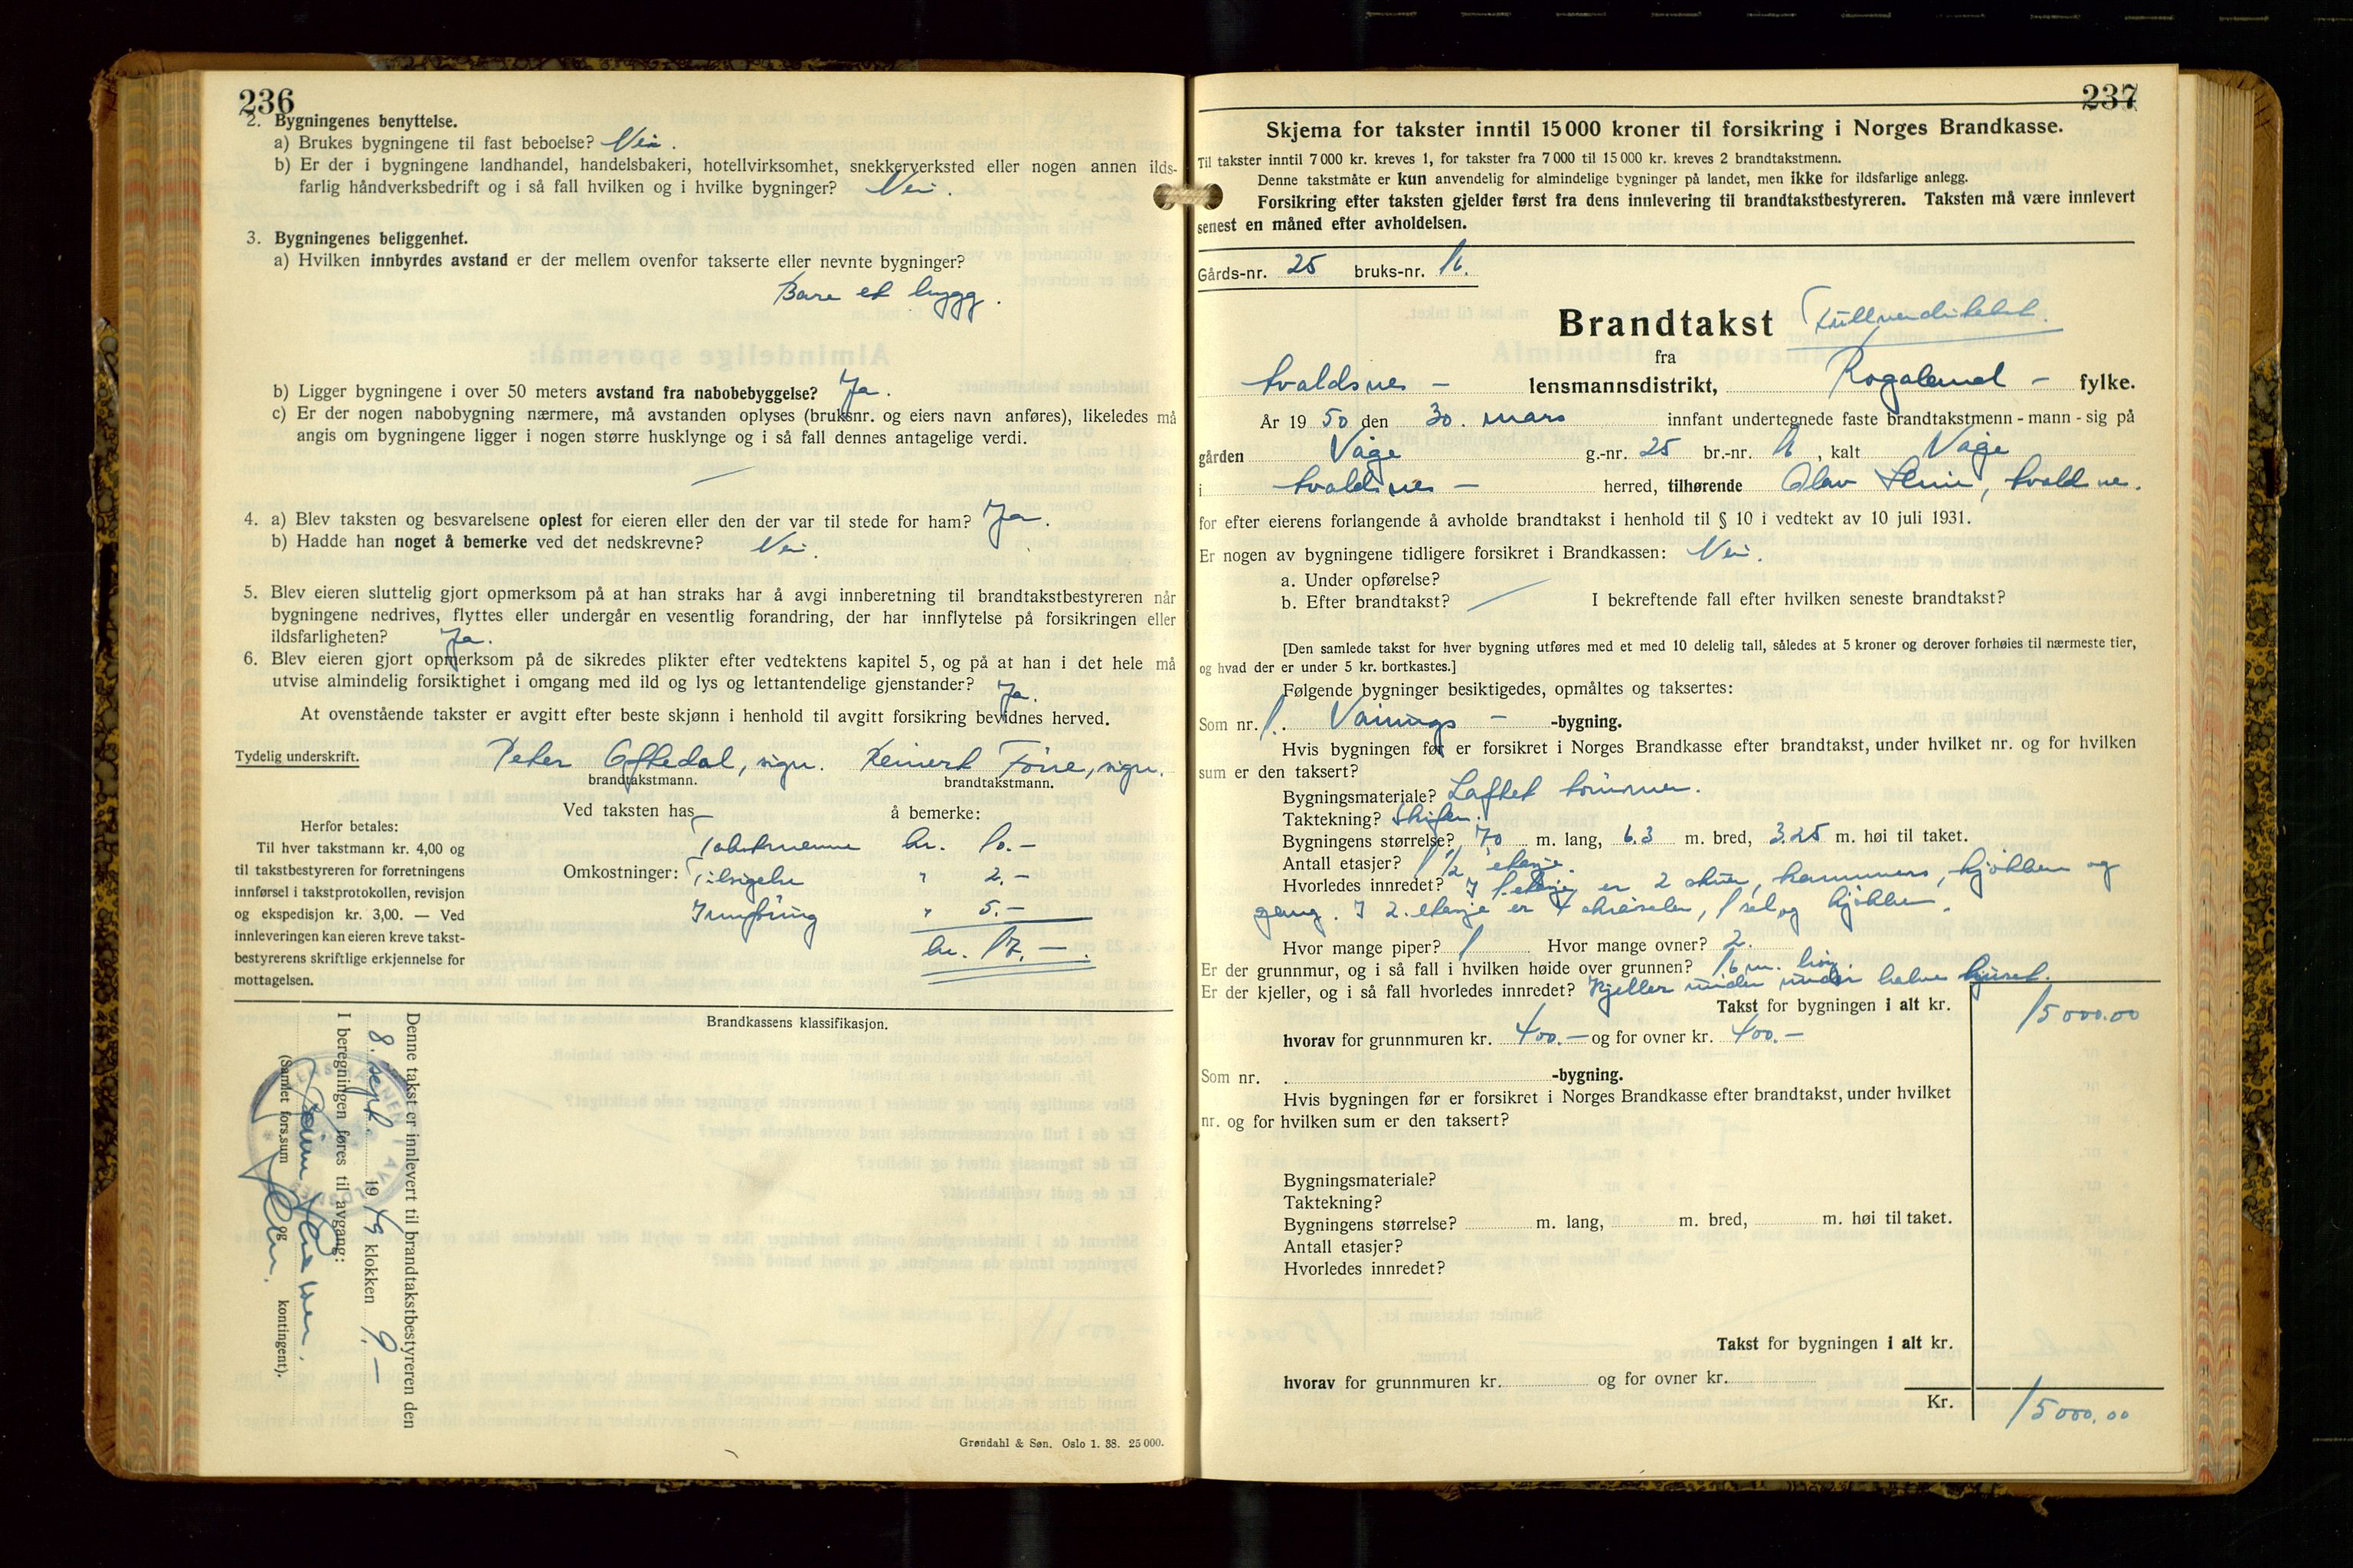 236
2. Bygningenes benyttelse.
a) Brukes bygningene til fast beboelse? Nei.
b) Er der i bygningene landhandel, handelsbakeri, hotellvirksomhet, snekkerverksted eller nogen annen ilds-
farlig håndverksbedrift og i så fall hvilken og i hvilke bygninger? Nei.
3. Bygningenes beliggenhet.
a) Hvilken innbyrdes avstand er der mellem ovenfor takserte eller nevnte bygninger?
Bare et bygg.
b) Ligger bygningene i over 50 meters avstand fra nabobebyggelse? Ja.
c) Er der nogen nabobygning nærmere, må avstanden oplyses (bruksnr. og eiers navn anføres), likeledes må
angis om bygningene ligger i nogen større husklynge og i så fall dennes antagelige verdi.
—
4. a) Blev taksten og besvarelsene oplest for eieren eller den der var til stede for ham? Ja.
b) Hadde han noget å bemerke ved det nedskrevne? Nei.
5. Blev eieren sluttelig gjort opmerksom på at han straks har å avgi innberetning til brandtakstbestyreren når
bygningene nedrives, flyttes eller undergår en vesentlig forandring, der har innflytelse på forsikringen eller
ildsfarligheten? Ja.
6. Blev eieren gjort opmerksom på de sikredes plikter efter vedtektens kapitel 5, og på at han i det hele må
utvise almindelig forsiktighet i omgang med ild og lys og lettantendelige gjenstander? Ja.
At ovenstående takster er avgitt efter beste skjønn i henhold til avgitt forsikring bevidnes herved.
Tydelig underskrift. Peter Oftedal, sign. Reinert Førre, sign.
brandtakstmann. brandtakstmann.
Ved taksten has — å bemerke:
Herfor betales:
Til hver takstmann kr. 4,00 og
til takstbestyreren for forretningens
innførsel i takstprotokollen, revisjon
og ekspedisjon kr. 3,00. — Ved
innleveringen kan eieren kreve takst-
bestyrerens skriftlige erkjennelse for
mottagelsen.
Takstmenne kr. 10.-
Omkostninger: Tilsigelse " 2.-
" 5.-
kr. 17.—
Brandkassens klassifikasjon.
Denne takst er innlevert til brandtakstbestyreren den
8. sept. 1949 klokken 9.—
I beregningen føres til avgang:
LENSMANNEN I AVALDSNES
(Samlet fors.sum og kontingent).
Grøndahl & Søn. Oslo 1. 38. 25 000.
237
Skjema for takster inntil 15 000 kroner til forsikring i Norges Brandkasse.
Til takster inntil 7 000 kr. kreves 1, for takster fra 7 000 til 15 000 kr. kreves 2 brandtakstmenn.
Denne takstmåte er kun anvendelig for almindelige bygninger på landet, men ikke for ildsfarlige anlegg.
Forsikring efter taksten gjelder først fra dens innlevering til brandtakstbestyreren. Taksten må være innlevert
senest en måned efter avholdelsen.
Gårds-nr. 25 bruks-nr. 16.
Brandtakst (Fullverditakst.
fra
Avaldsnes — lensmannsdistrikt, Rogaland — fylke.
År 1950 den 30. mars innfant undertegnede faste brandtakstmenn - mann - sig på
gården Våge g.-nr. 25 br.-nr. 16, kalt Våge
i Avaldsnes — herred, tilhørende Olav, Avaldsnes.
for efter eierens forlangende å avholde brandtakst i henhold til § 10 i vedtekt av 10 juli 1931.
Er nogen av bygningene tidligere forsikret i Brandkassen: Nei.
a. Under opførelse?
b. Efter brandtakst? — I bekreftende fall efter hvilken seneste brandtakst?
[Den samlede takst for hver bygning utføres med et med 10 delelig tall, således at 5 kroner og derover forhøies til nærmeste tier,
og hvad der er under 5 kr. bortkastes.]
Følgende bygninger besiktigedes, opmåltes og taksertes:
Som nr. 1. Vånings — -bygning.
Hvis bygningen før er forsikret i Norges Brandkasse efter brandtakst, under hvilket nr. og for hvilken
sum er den taksert?
Bygningsmateriale? Laftet tømmer.
Taktekning? Skifer.
Bygningens størrelse? 70 m. lang, 6.3 m. bred, 3.25 m. høi til taket.
Antall etasjer? 1 1/2 etasje.
Hvorledes innredet? I 1. etasje er 2 stuer, kammers, kjøkken og
gang. I 2. etasje er 4 , 1 sal og kjøkken.
Hvor mange piper? 1 Hvor mange ovner? 2.
Er der grunnmur, og i så fall i hvilken høide over grunnen? 1.6 m. høi.
Er der kjeller, og i så fall hvorledes innredet? Kjeller under under halve huset.
Takst for bygningen i alt kr. 15000.00
hvorav for grunnmuren kr. 400.— og for ovner kr. 400.—
Som nr. . -bygning.
Hvis bygningen før er forsikret i Norges Brandkasse efter brandtakst, under hvilket
nr. og for hvilken sum er den taksert?
Bygningsmateriale?
Taktekning?
Bygningens størrelse? m. lang, m. bred, m. høi til taket.
Antall etasjer?
Hvorledes innredet?
Takst for bygningen i alt kr.
hvorav for grunnmuren kr. og for ovner kr.
Kr. 15000.00